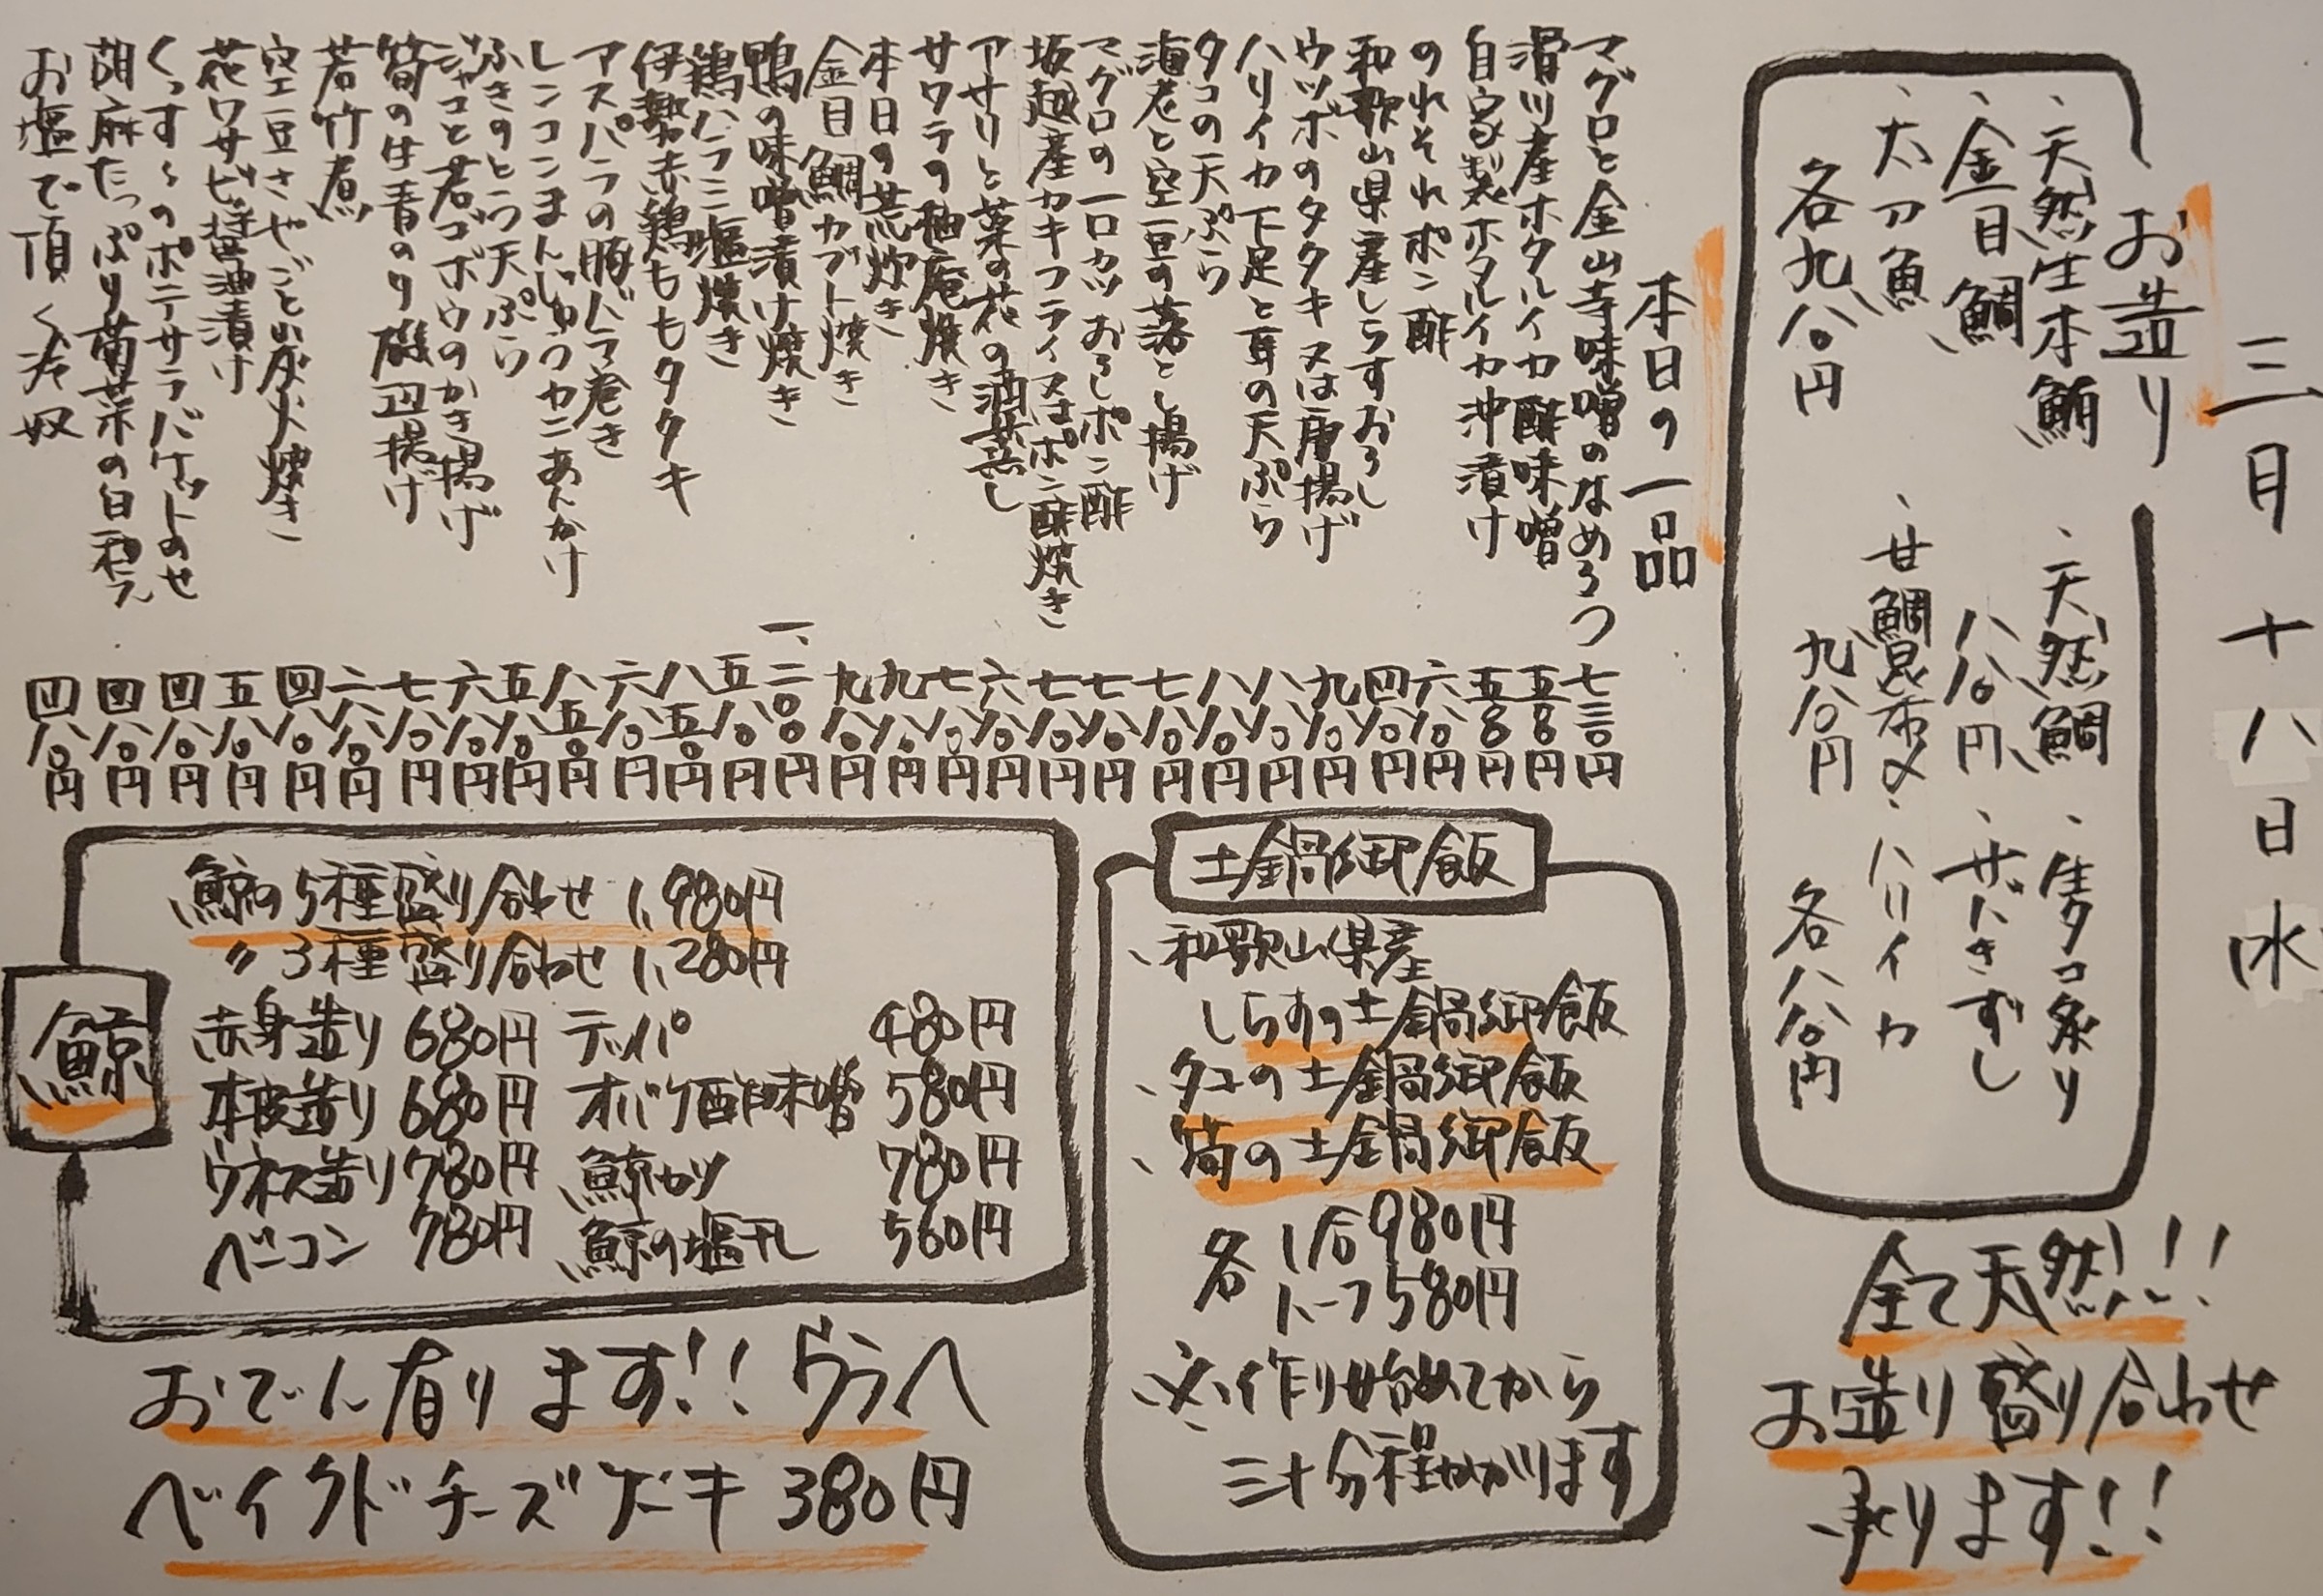 三月十八日水
お造り
、天然生本鮪
、金目鯛
、太刀魚
各九八〇円
、天然鯛
八八〇円
、甘鯛昆布〆
九八〇円
、生タコ炙り
、サバきずし
、ハリイカ
各八八〇円
全て天然!!
お造り盛り合わせ
承ります!!
本日の一品
マグロと金山寺味噌のなめろう 七三〇円
滑川産ホタルイカ酢味噌 五八〇円
自家製ホタルイカ沖漬け 五八〇円
のれそれポン酢 六八〇円
和歌山県産しらすおろし 四八〇円
ウツボのタタキ又は唐揚げ 九八〇円
ハリイカ下足と耳の天ぷら 八八〇円
タコの天ぷら 八八〇円
海老と空豆の落とし揚げ 七八〇円
マグロの一口カツおろしポン酢 七八〇円
坂越産カキフライ又はポン酢焼き 七八〇円
アサリと菜の花の酒蒸し 六八〇円
サワラの柚庵焼き 七八〇円
本日の荒炊き 九八〇円
金目鯛カブト焼き 九八〇円
鴨の味噌漬け焼き 一、二〇〇円
鶏ハラミ塩焼き 五八〇円
伊勢赤鶏ももタタキ 八五〇円
アスパラの豚バラ巻き 六八〇円
レンコンまんじゅうカニあんかけ 八五〇円
ふきのとう天ぷら 五八〇円
ジャコと若ゴボウのかき揚げ 六八〇円
筍の生青のり磯辺揚げ 七八〇円
若竹煮 六八〇円
空豆さやごと炭火焼き 四八〇円
花ワサビ醤油漬け 五八〇円
くっすんのポテサラバケットのせ 四八〇円
胡麻たっぷり菊菜の白和え 四八〇円
お塩で頂く冷奴 四八〇円
土鍋御飯
、和歌山県産
しらすの土鍋御飯
、タコの土鍋御飯
、筍の土鍋御飯
各 1合 980円
ハーフ 580円
※作り始めてから
三十分程かかります
鯨
鯨の5種盛り合わせ 1,980円
〃 3種盛り合わせ 1,280円
赤身造り 680円 テッパ 480円
本皮造り 680円 オバケ酢味噌 580円
ウネス造り 780円 鯨カツ 780円
ベーコン 780円 鯨の塩干し 560円
おでん有ります!! ウラへ
ベイクドチーズケーキ 380円